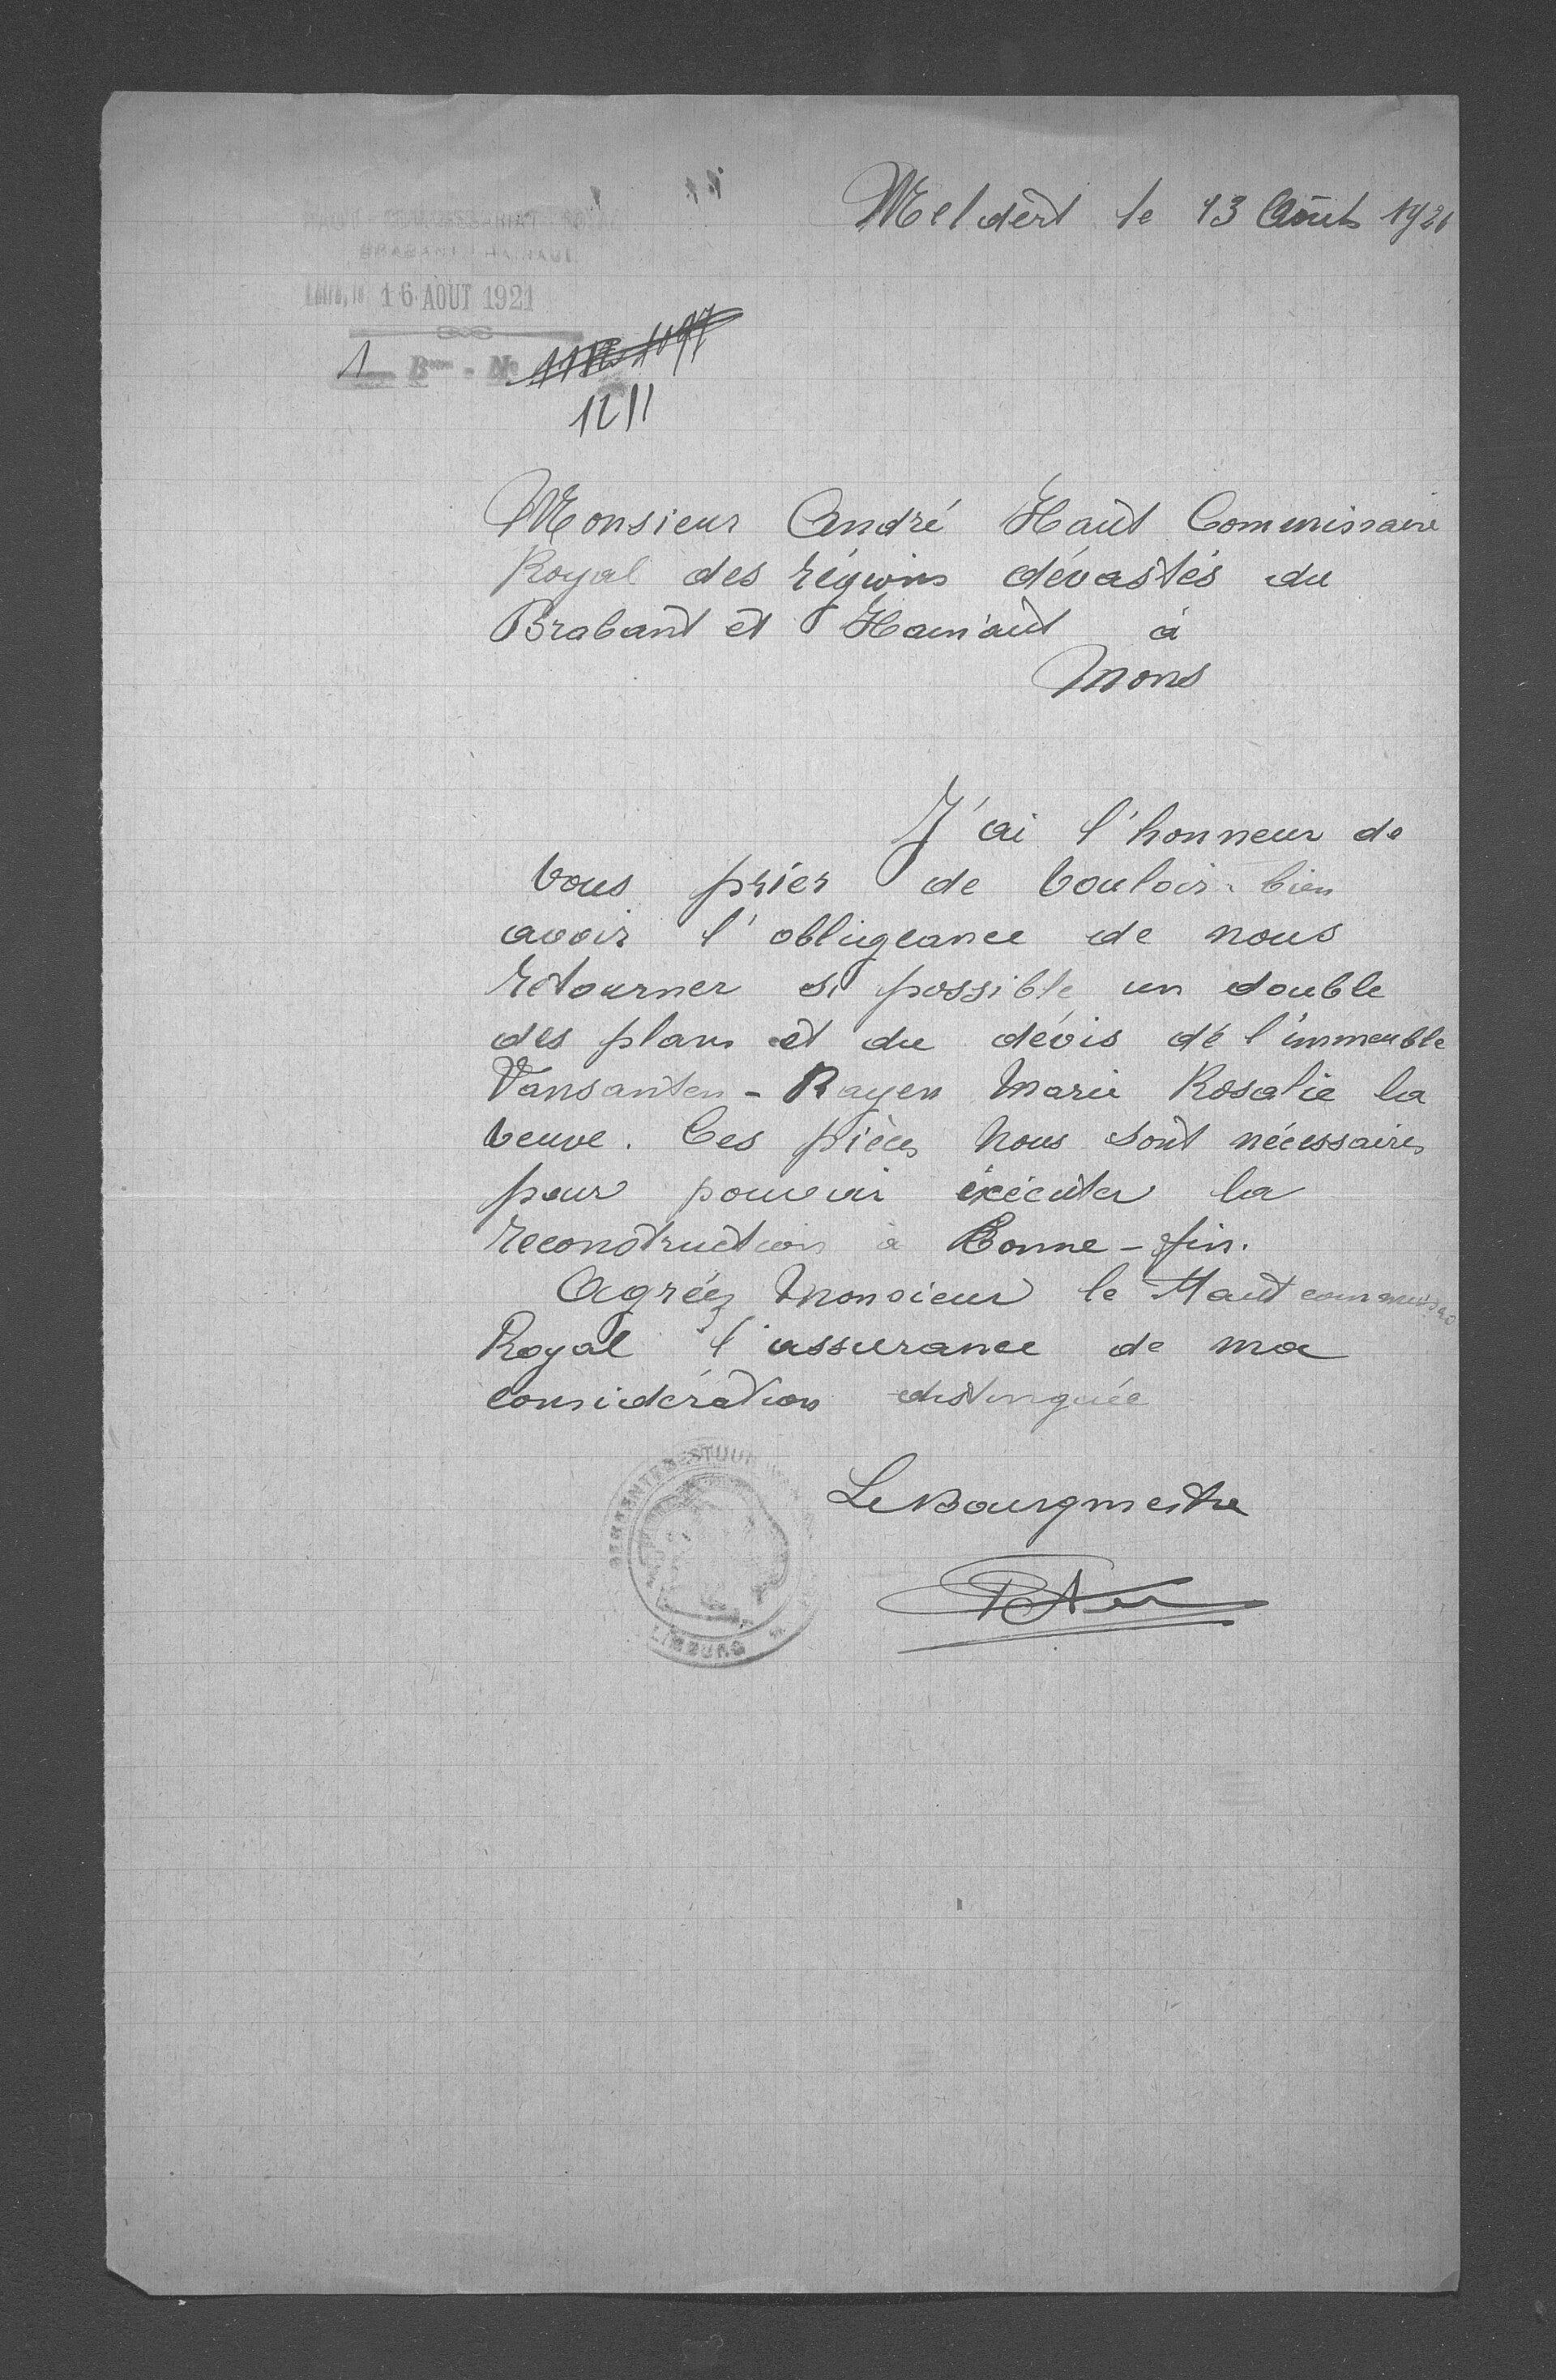 Meldert le 13 Août 1921
HAUT COMMISSARIAT ROYAL
BRABANT HAINAUT
Entré, le 16 AOUT 1921
1 Bon - No
1211
Monsieur André Haut Commissaire
Royal des régions dévastés du
Brabant et Hainaut à
Mons
J'ai l'honneur de
vous prier de vouloir bien
avoir l'obligeance de nous
retourner si possible un double
des plans et du dévis de l'immeuble
Vansanten - Rayen Marie Rosalie la
veuve. Ces pièces nous sont nécessaires
pour pouvoir éxécuter la
reconstruction à bonne - fin.
Agréez Monsieur le Haut commissaire
Royal l'assurance de ma
considération distinguée
Le Bourgmestre
GEMEENTEBESTUUR
LIMBURG